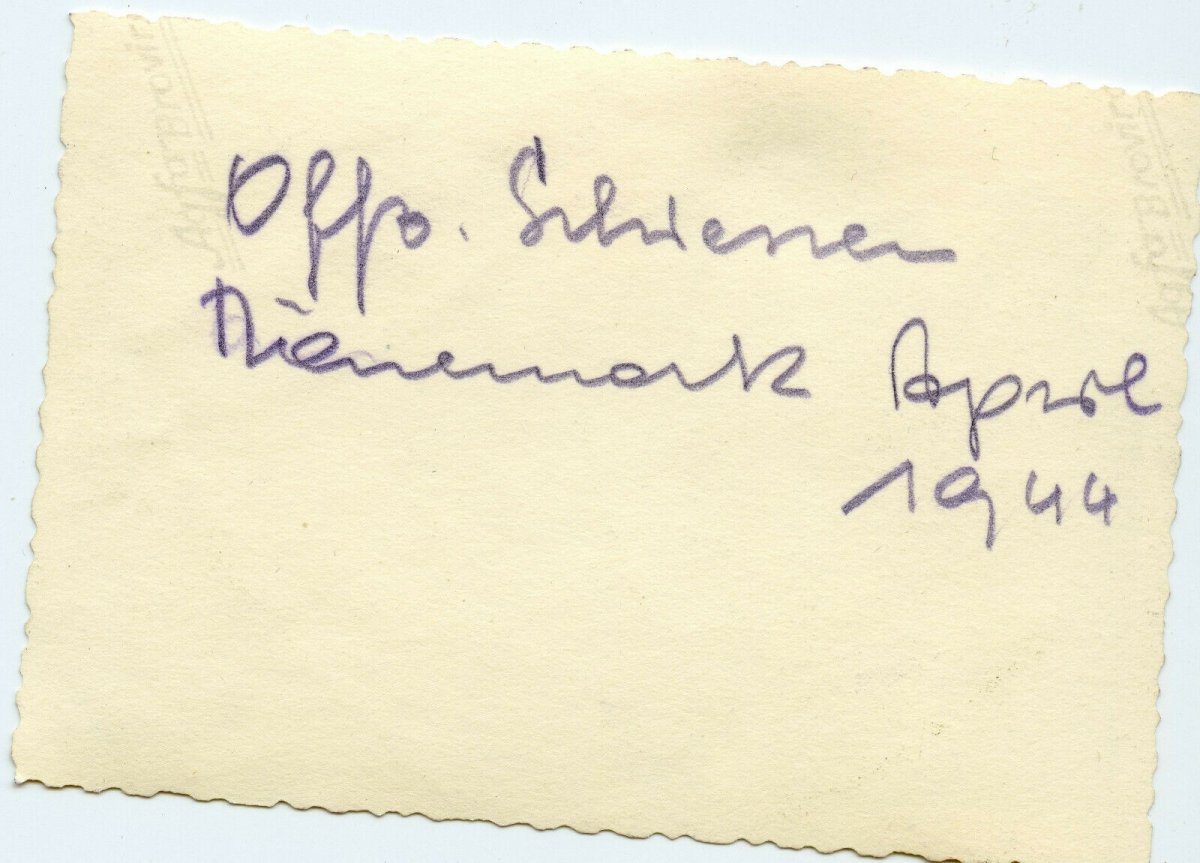 Offs. Schiessen
Dänemark April
1944
Agfa Brovira
Agfa Brovira